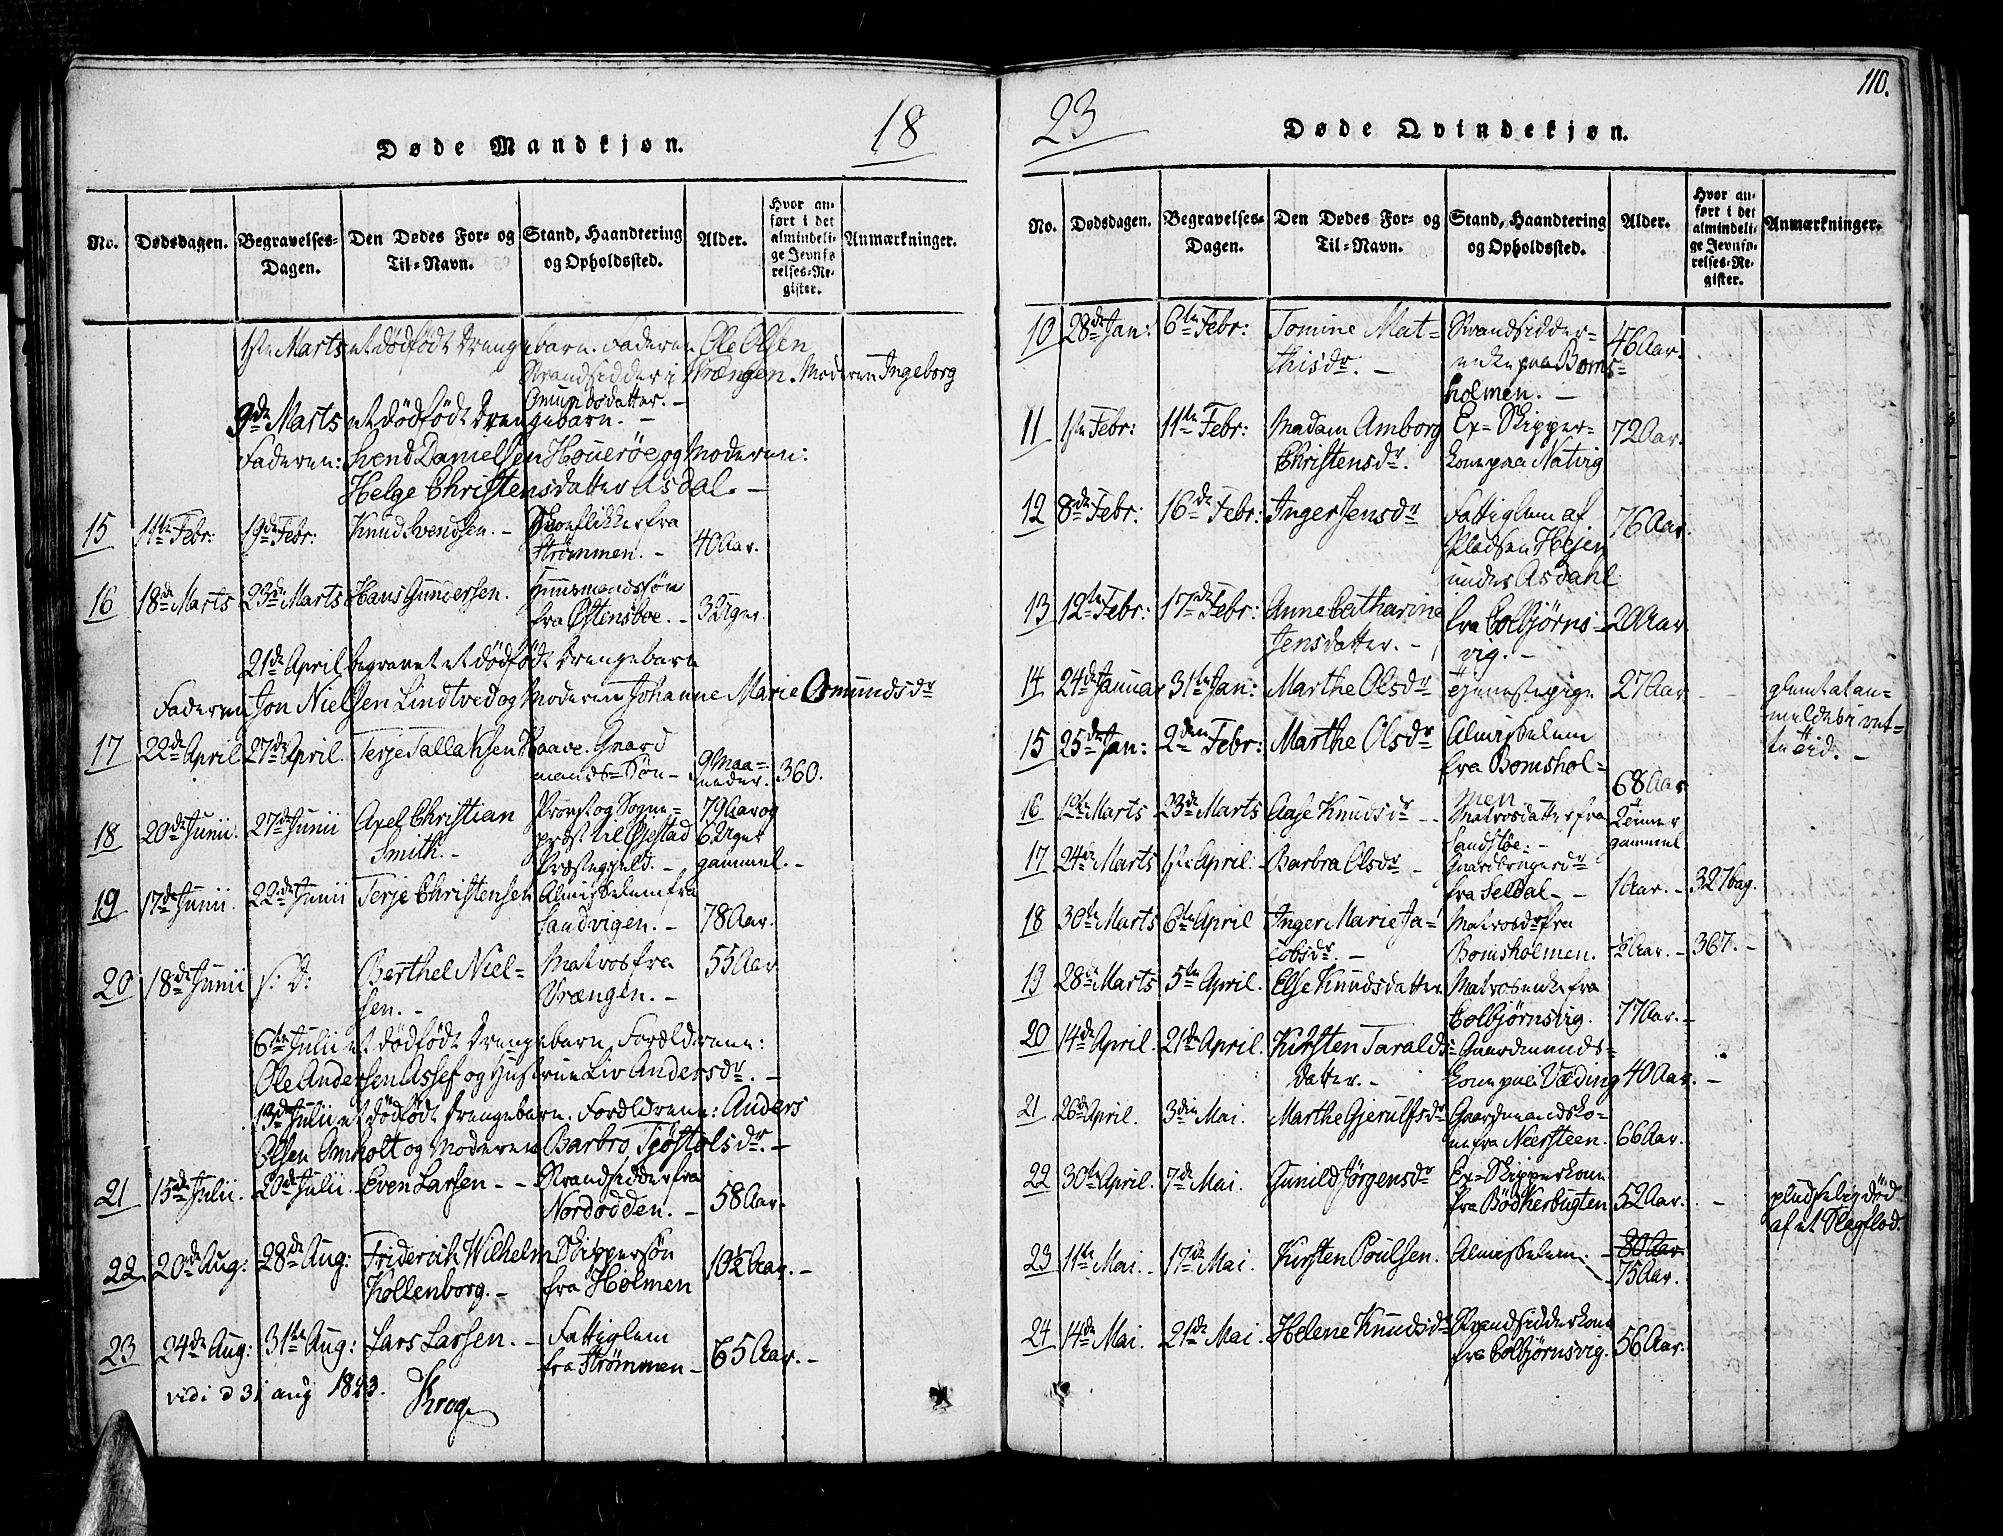 Døde Mandkjøn.
18
No.
Dødsdagen.
Begravelses-
Dagen.
Den Dødes For- og
Til-Navn.
Stand, Haandtering
og Opholdssted.
Alder.
Hvor an-
ført i det
almindeli-
ge Jevnfø
relses-Re-
gister.
Anmærkninger.
1ste Marts et dödfödt Drengebarn. Faderen Ole Olsen
Strandsidder i Vrængen. Moderen Ingeborg
Omundsdatter. -
9de Marts et dödfödt Drengebarn. -
Faderen: Svend Danielsen Houeröe og Moderen:
Helge Christensdatter Asdal. -
15 11te Febr: 19de Febr: Knud Svendsen. - Skoeflikker fra
Strømmen. - 40 Aar.
16 18de Marts 23de Marts Hans Gundersen. Huusmandssøn
fra Østensboe. - 3 Uger.
21de April begravet et dödfödt Drengebarn
Faderen Jon Nielsen Lindtved og Moderen Johanne Marie Omundsdr
17 22de April 27de April. Terje Tallaksen Haave. Gaard
mands-Søn - 9 Maa-
neder. 360.
18 20de Junii. 27de Junii Axel Christian
Smith. - Provst og Sogne-
præst til Øiestad
Præstegjeld. - 79 Aar og
6 Uger
gammel. -
19 17de Junii. 22de Junii Terje Christensen Almisselem fra
Sandvigen. - 78 Aar.
20 18de Junii s: D: Berthel Niel-
sen. - Matros fra
Vrængen. - 55 Aar
6te Julii et dödfödt Drengebarn. Forældrene:
Ole Andersen Assef og Hustrue Liv Andersdr. -
13de Julii et dödfödt Drengebarn. Forældrene: Anders
Olsen Omholt og Moderen Barbro Tjøstolsdr. -
21 15de Julii. 20de Julii. Even Larsen - - Strandsidder fra
Nordodden. - 58 Aar.
22 20de Aug: 28de Aug: Friderich Wilhelm
Kollenborg. - Skippersøn
fra Holmen 10½ Aar. -
23 24de Aug: 31te Aug: Lars Larsen. - Fattiglem
fra Strømmen - 65 Aar. -
vidi d 31 aug 1823.
Krog
110.
23
Døde Qvindekjøn.
No.
Dødsdagen.
Begravelses-
Dagen.
Den Dødes For- og
Til-Navn.
Stand, Haandtering
og Opholdssted.
Alder.
Hvor an-
ført i det
almindeli-
ge Jevnfø-
relses-Re-
gister.
Anmærkninger.
10 28de Jan: 6te Febr: Tomine Mat-
thisdr. - Strandsidder-
enke paa Boms-
holmen. - 46 Aar.
11 1ste Febr: 11te Febr: Madam Amborg
Christensdr. Ex-Skipper-
kone paa Natvig 72 Aar.
12 8de Febr: 16de Febr: Inger Jensdr Fattiglem af
Pladsen Hejen
under Asdahl 76 Aar.
13 12te Febr: 17de Febr: Anne Catharine
Jensdatter. - fra Colbjørns-
vig. - 20 Aar
14 24de Januar 31te Jan: Marthe Olsdr Tjenestepige 27 Aar glemt at an-
meldes i ret-
te tid. -
15 25de Jan: 2den Febr: Marthe Olsdr Almisselem
fra Bomshol-
men 68 Aar
16 12te Marts 23de Marts Aase Knudsdr - Matrosdatter fra
Sandstøe: - 2 timer
gammel
17 24de Marts 1ste April. Barbra Olsdr - Gaardbrugerdr
fra Seldal - - 1 Aar. - 327 bag.
18 30te Marts 6te April Inger Marie Ja-
cobsdr. - Matrosdr fra
Bomsholmen. ½ Aar. - 367. -
19 28de Marts 5te April. Else Knudsdatter Matrosenke fra
Colbjørnsvig. 77 Aar. -
20 14de April. 21de April. Kirsten Taralds-
datter. - Gaardmands-
kone paa Væding 40 Aar. -
21 26de April. 3die Mai. Marthe Gjerulfsdr Gaardmandsko-
ne fra Nærsteen. 66 Aar.
22 30te April. 7de Mai. Gunild Jørgensdr Ex-Skipperkone
fra Bödkerbugten 52 Aar. - pludselig död
af et Slagflod.
23 11te Mai. 17de Mai. Kirsten Poulsen. Almisselem. - 80 Aar.
75 Aar.
24 14de Mai. 21de Mai. Helene Knudsdr Strandsidderkone
fra Colbjørnsvig. 56 Aar.